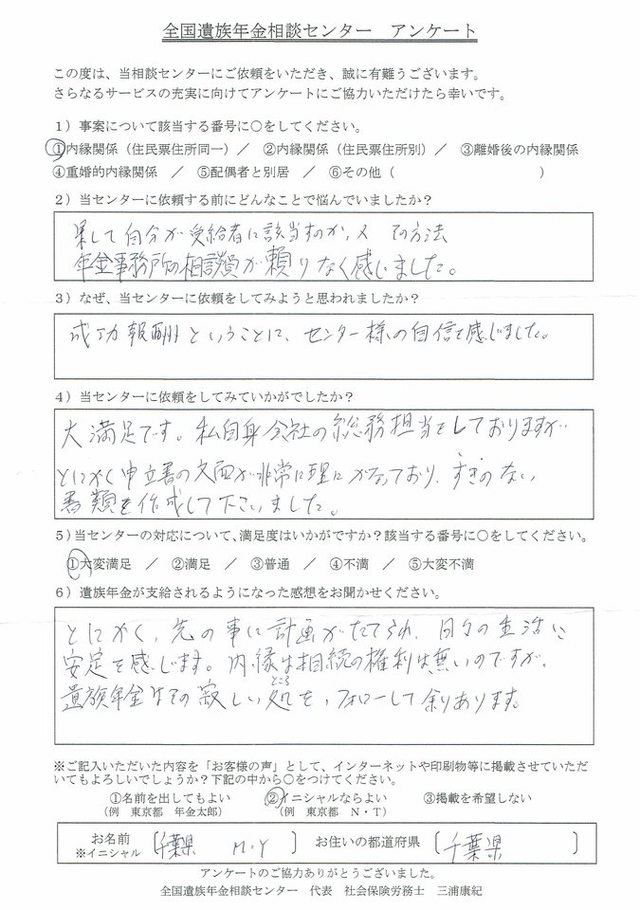 全国遺族年金相談センター　アンケート
この度は、当相談センターにご依頼をいただき、誠に有難うございます。
さらなるサービスの充実に向けてアンケートにご協力いただけたら幸いです。
１）事案について該当する番号に○をしてください。
①内縁関係（住民票住所同一）／　②内縁関係（住民票住所別）／　③離婚後の内縁関係
④重婚的内縁関係　／　⑤配偶者と別居　／　⑥その他（　　　　　　　　　　）
２）当センターに依頼する前にどんなことで悩んでいましたか？
果して自分が受給者に該当すのか、その方法
年金事務所の相談員が頼りなく感じました。
３）なぜ、当センターに依頼をしてみようと思われましたか？
成功報酬ということに、センター様の自信を感じました。
４）当センターに依頼をしてみていかがでしたか？
大満足です。私自身会社の総務担当をしておりますが
とにかく申立書の文面が非常に理にかなっており、すきのない
書類を作成して下さいました。
５）当センターの対応について、満足度はいかがですか？該当する番号に○をしてください。
①大変満足　／　②満足　／　③普通　／　④不満　／　⑤大変不満
６）遺族年金が支給されるようになった感想をお聞かせください。
とにかく、先の事に計画がたてられ、日々の生活に
安定を感じます。内縁は相続の権利は無いのですが、
遺族年金はその寂しい処を、フォローして余りあります。
ところ
※ご記入いただいた内容を「お客様の声」として、インターネットや印刷物等に掲載させていただ
いてもよろしいでしょうか？下記の中から○をつけてください。
①名前を出してもよい　②イニシャルならよい　③掲載を希望しない
（例　東京都　年金太郎）　（例　東京都　Ｎ・Ｔ）
お名前　〔千葉県　M.Y　〕　お住いの都道府県　〔千葉県　〕
※イニシャル
アンケートのご協力ありがとうございました。
全国遺族年金相談センター　代表　社会保険労務士　三浦康紀